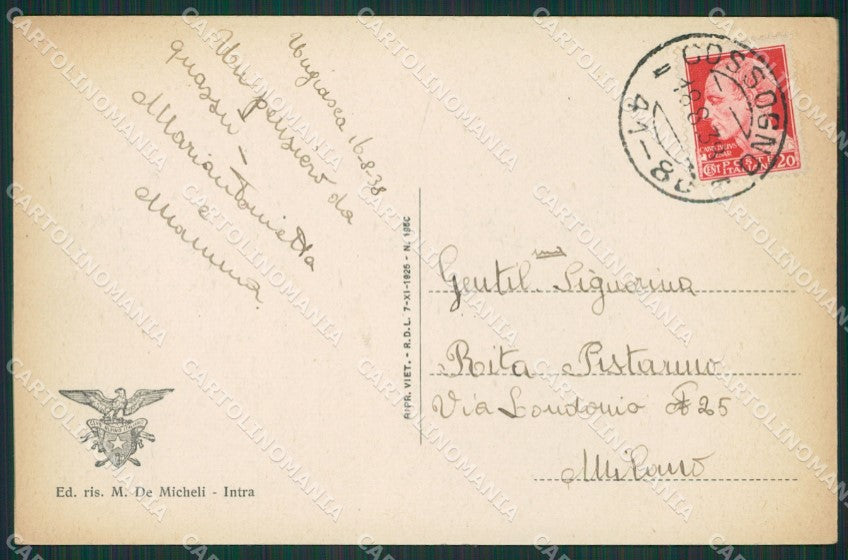 Ungiasca 16-8-38
Un pensiero da
quassù -
Mariantonietta
e
Mamma
COSSOGNO
41-86
CENT POSTE ITALIANE 20
RIPR. VIET. - R.D.L. 7-XI-1925 - N. 1950
Gentil.ma Signorina
Rita Pistarino
Via Londonio 25
Milano
Ed. ris. M. De Micheli - Intra
CARTOLINOMANIA